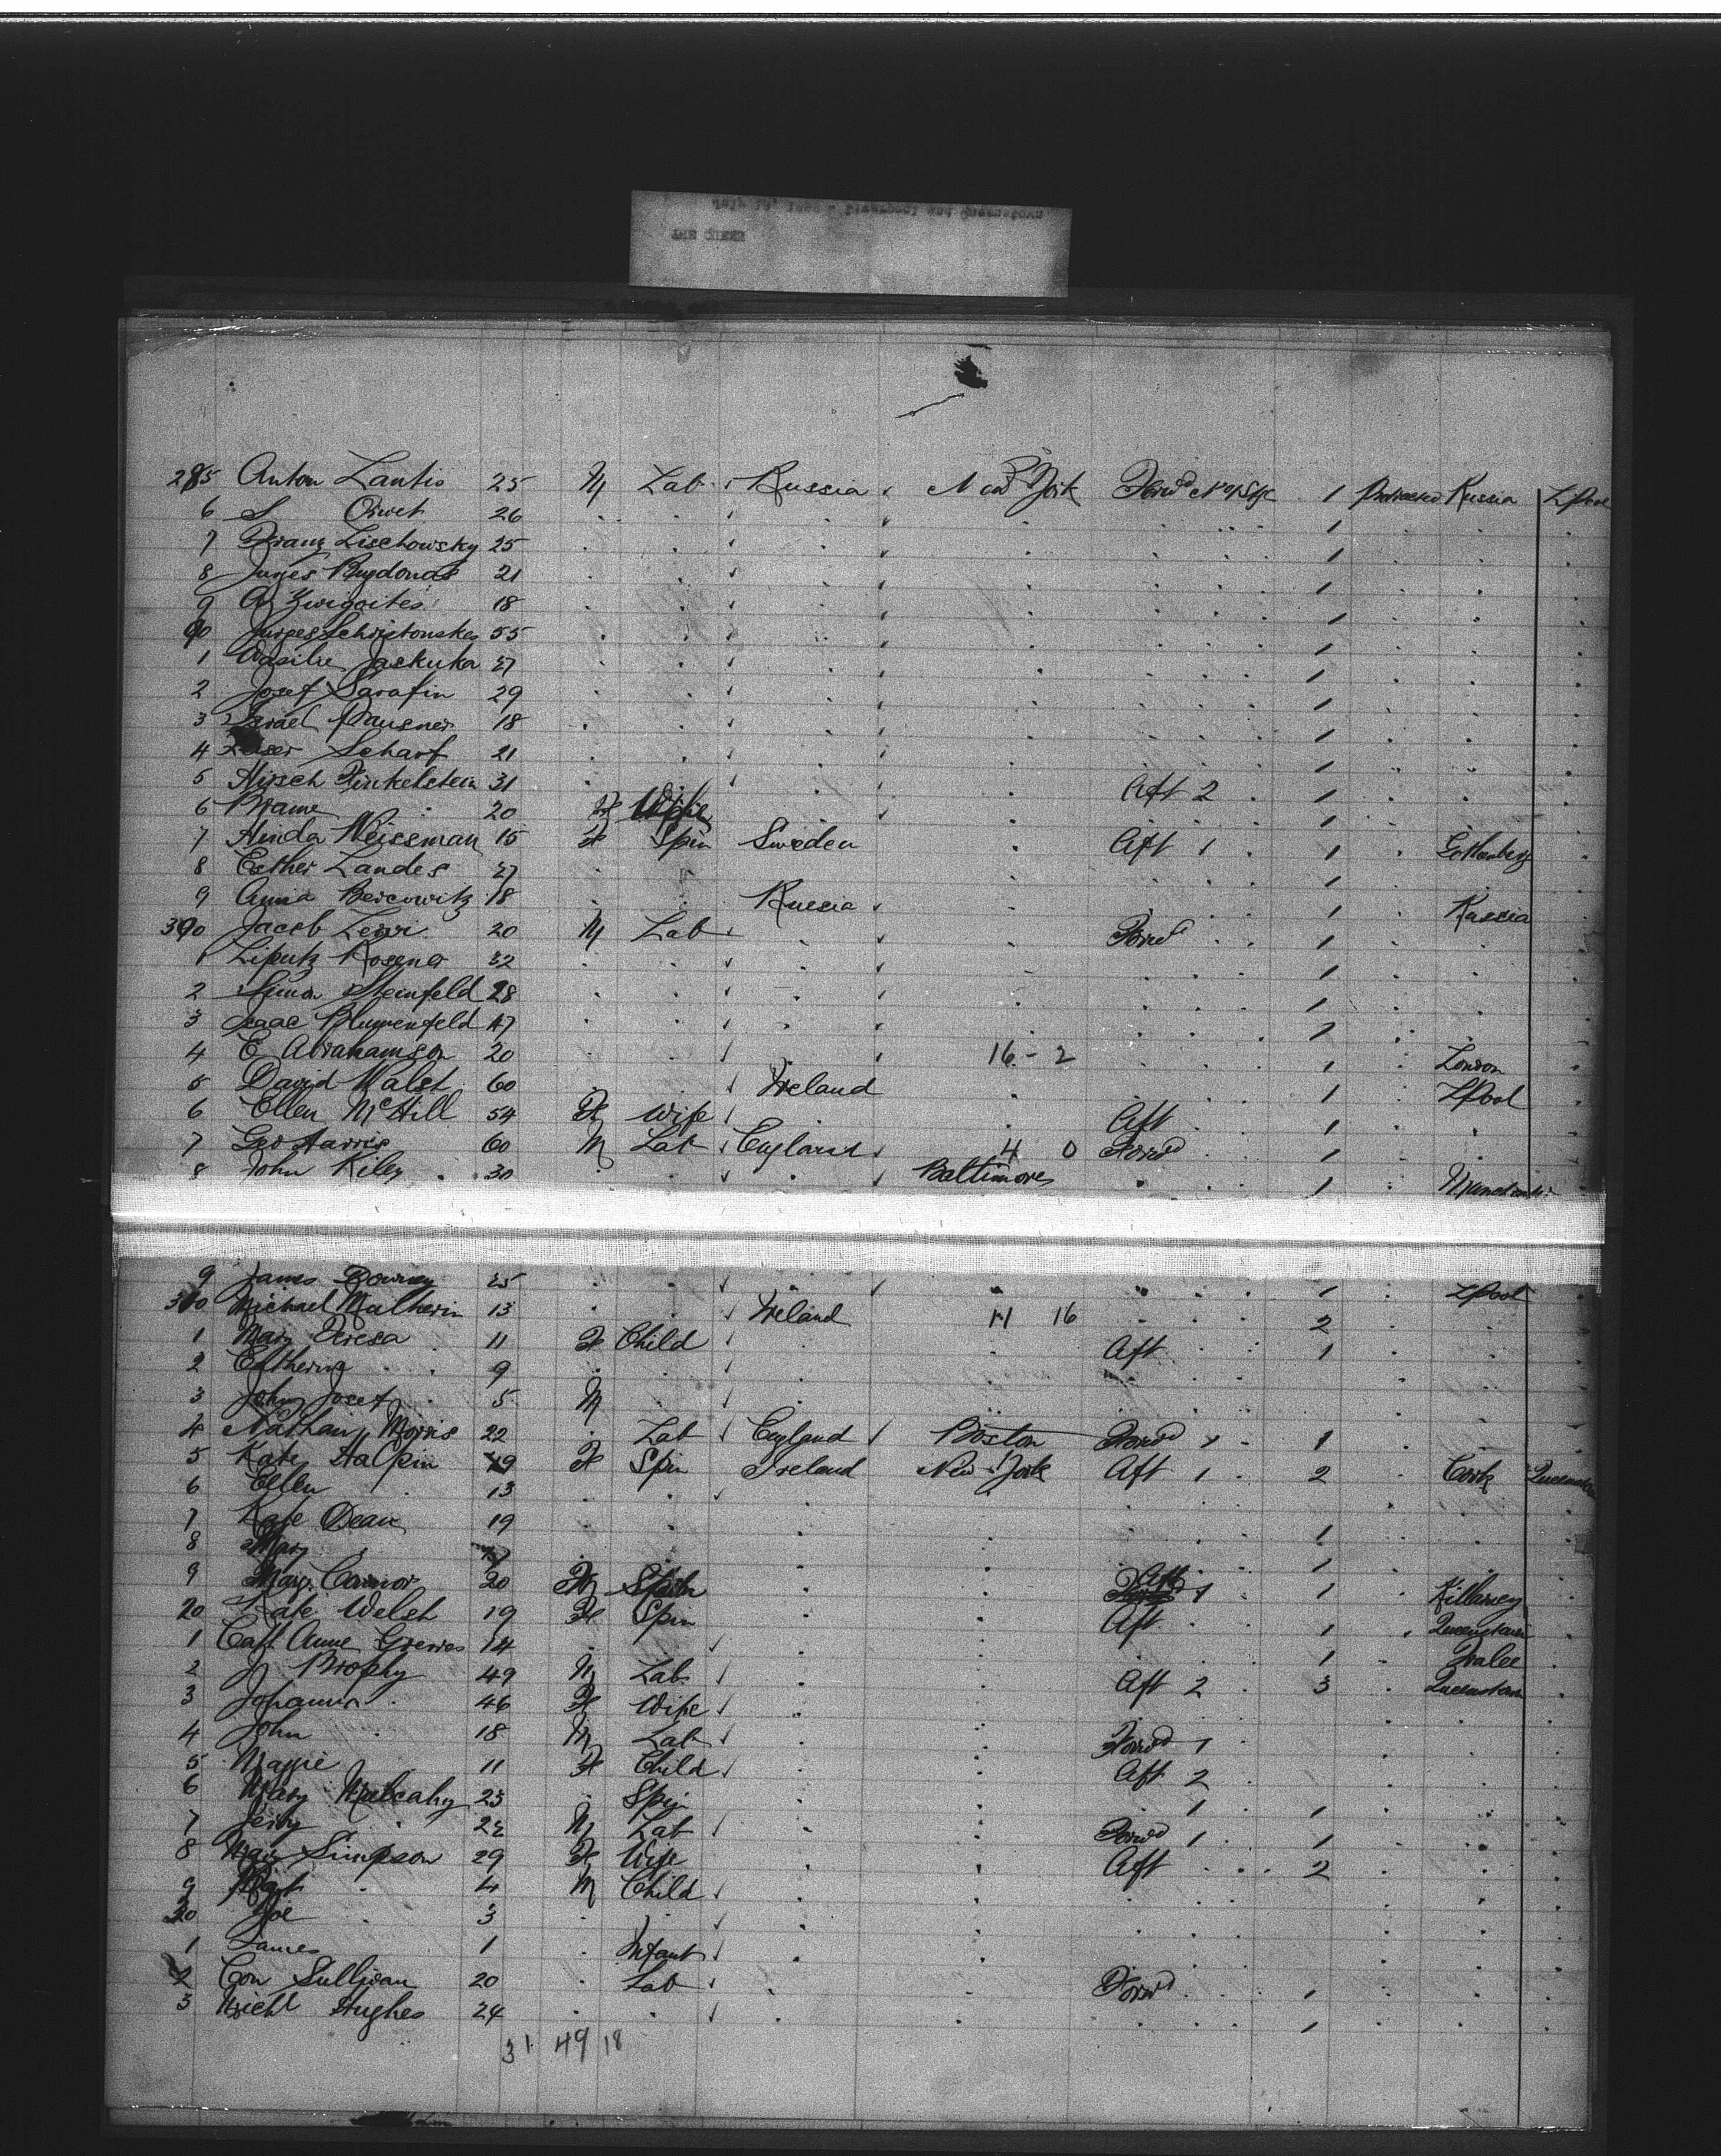 285 Anton Lantis 25 M Lab Russia New York Forwd 1 Protracted Russia L'Pool
6 S 26 1
7 Franz Lischowsky 25 1
8 Jurges Bugdonas 21 1
9 A Zwigaites 18 1
90 Jurges 55 1
1 Wasilie Jaskuka 27 1
2 Josef Sarafin 29 1
3 Israel Prausner 18 1
4 Leiser Scharf 21 1
5 Hirsch Finkelstein 31 Aft 2 1
6 Brame 20 F Wife 1
7 Hinda Weissman 15 F Spin Sweden Aft 1 1 Gothenberg
8 Esther Landes 27 1
9 Anna Bercowitz 18 Russia 1 Russia
300 Jacob Levi 20 M Lab Forwd 1
1 Liputz Rosener 32 1
2 Simon Steinfeld 28 1
3 Isaac Blumenfeld 47 1
4 E Abrahamson 20 16 - 2 1 London
5 David Walsh 60 Ireland 1 L'Pool
6 Ellen McHill 54 F Wife Aft 1
7 Geo Harris 60 M Lab England 4 0 Forwd 1
8 John Kiley 30 Baltimore 1 Manchester
9 James Downey 25 1 L'Pool
310 Michael Mulherin 13 Ireland 14 16 2
1 Mary Teresa 11 F Child Aft 1
2 Catherine 9
3 John Josef 5 M
4 Nathan Morris 22 Lab England Boston Forwd 1 1
5 Kate Halpin 19 F Spin Ireland New York Aft 1 2 Cork Queenstown
6 Ellen 13
7 Kate Dean 19 1
8 Mary 1
9 Mary Connor 20 F Spin Aft 1 1 Killarney
20 Kate Welsh 19 F Spin Aft 1 Queenstown
1 Cath Anne 14 1 Tralee
2 J Brophy 49 M Lab Aft 2 3 Queenstown
3 Johanna 46 F Wife
4 John 18 M Lab Forwd 1
5 Maggie 11 F Child Aft 2
6 Mary Mulcahy 23 Spin 1 1
7 Jerry 22 M Lab Forwd 1 1
8 Mary Simpson 29 F Wife Aft 2
9 4 M Child
30 Joe 3
1 James 1 Infant
2 Con Sullivan 20 Lab Forwd 1
3 Michl Hughes 24 1
31 49 18